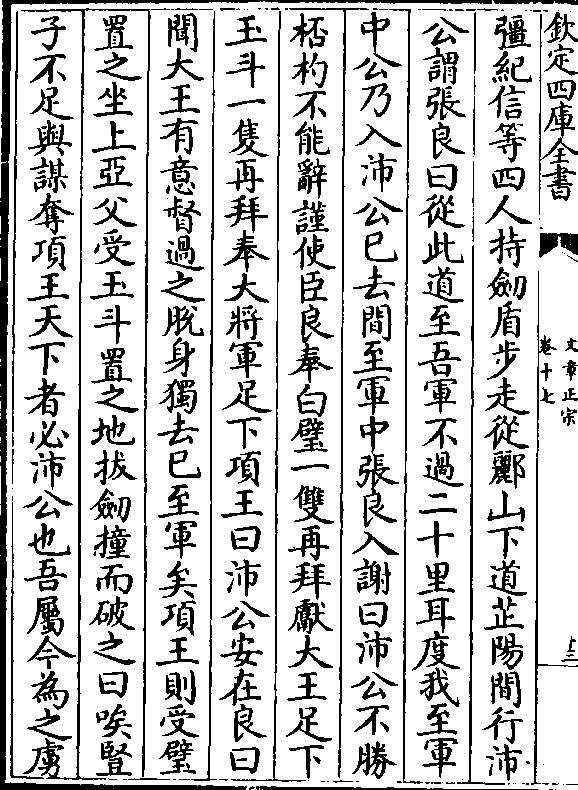 欽定四庫全書
文章正宗
卷十七
彊紀信等四人持劒盾步走從酈山下道芷陽間行沛
公謂張良曰從此道至吾軍不過二十里耳度我至軍
中公乃入沛公已去間至軍中張良入謝曰沛公不勝
桮杓不能辭謹使臣良奉白璧一雙再拜獻大王足下
玉斗一隻再拜奉大將軍足下項王曰沛公安在良曰
聞大王有意督過之脫身獨去已至軍矣項王則受璧
置之坐上亞父受玉斗置之地拔劒撞而破之曰唉豎
子不足與謀奪項王天下者必沛公也吾屬今為之虜